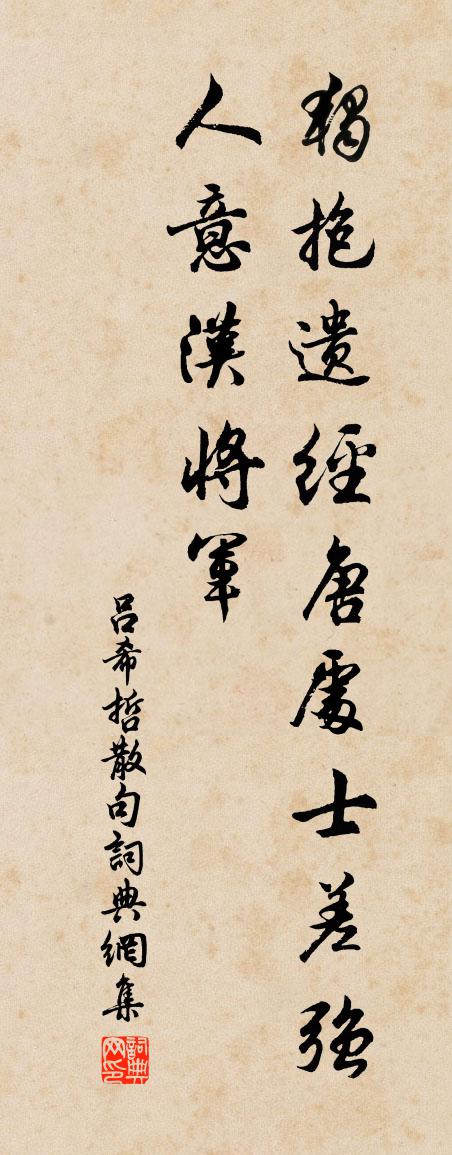 獨抱遺經唐處士差強
人意漢將軍
呂希哲散句詞典網集
詞典网印